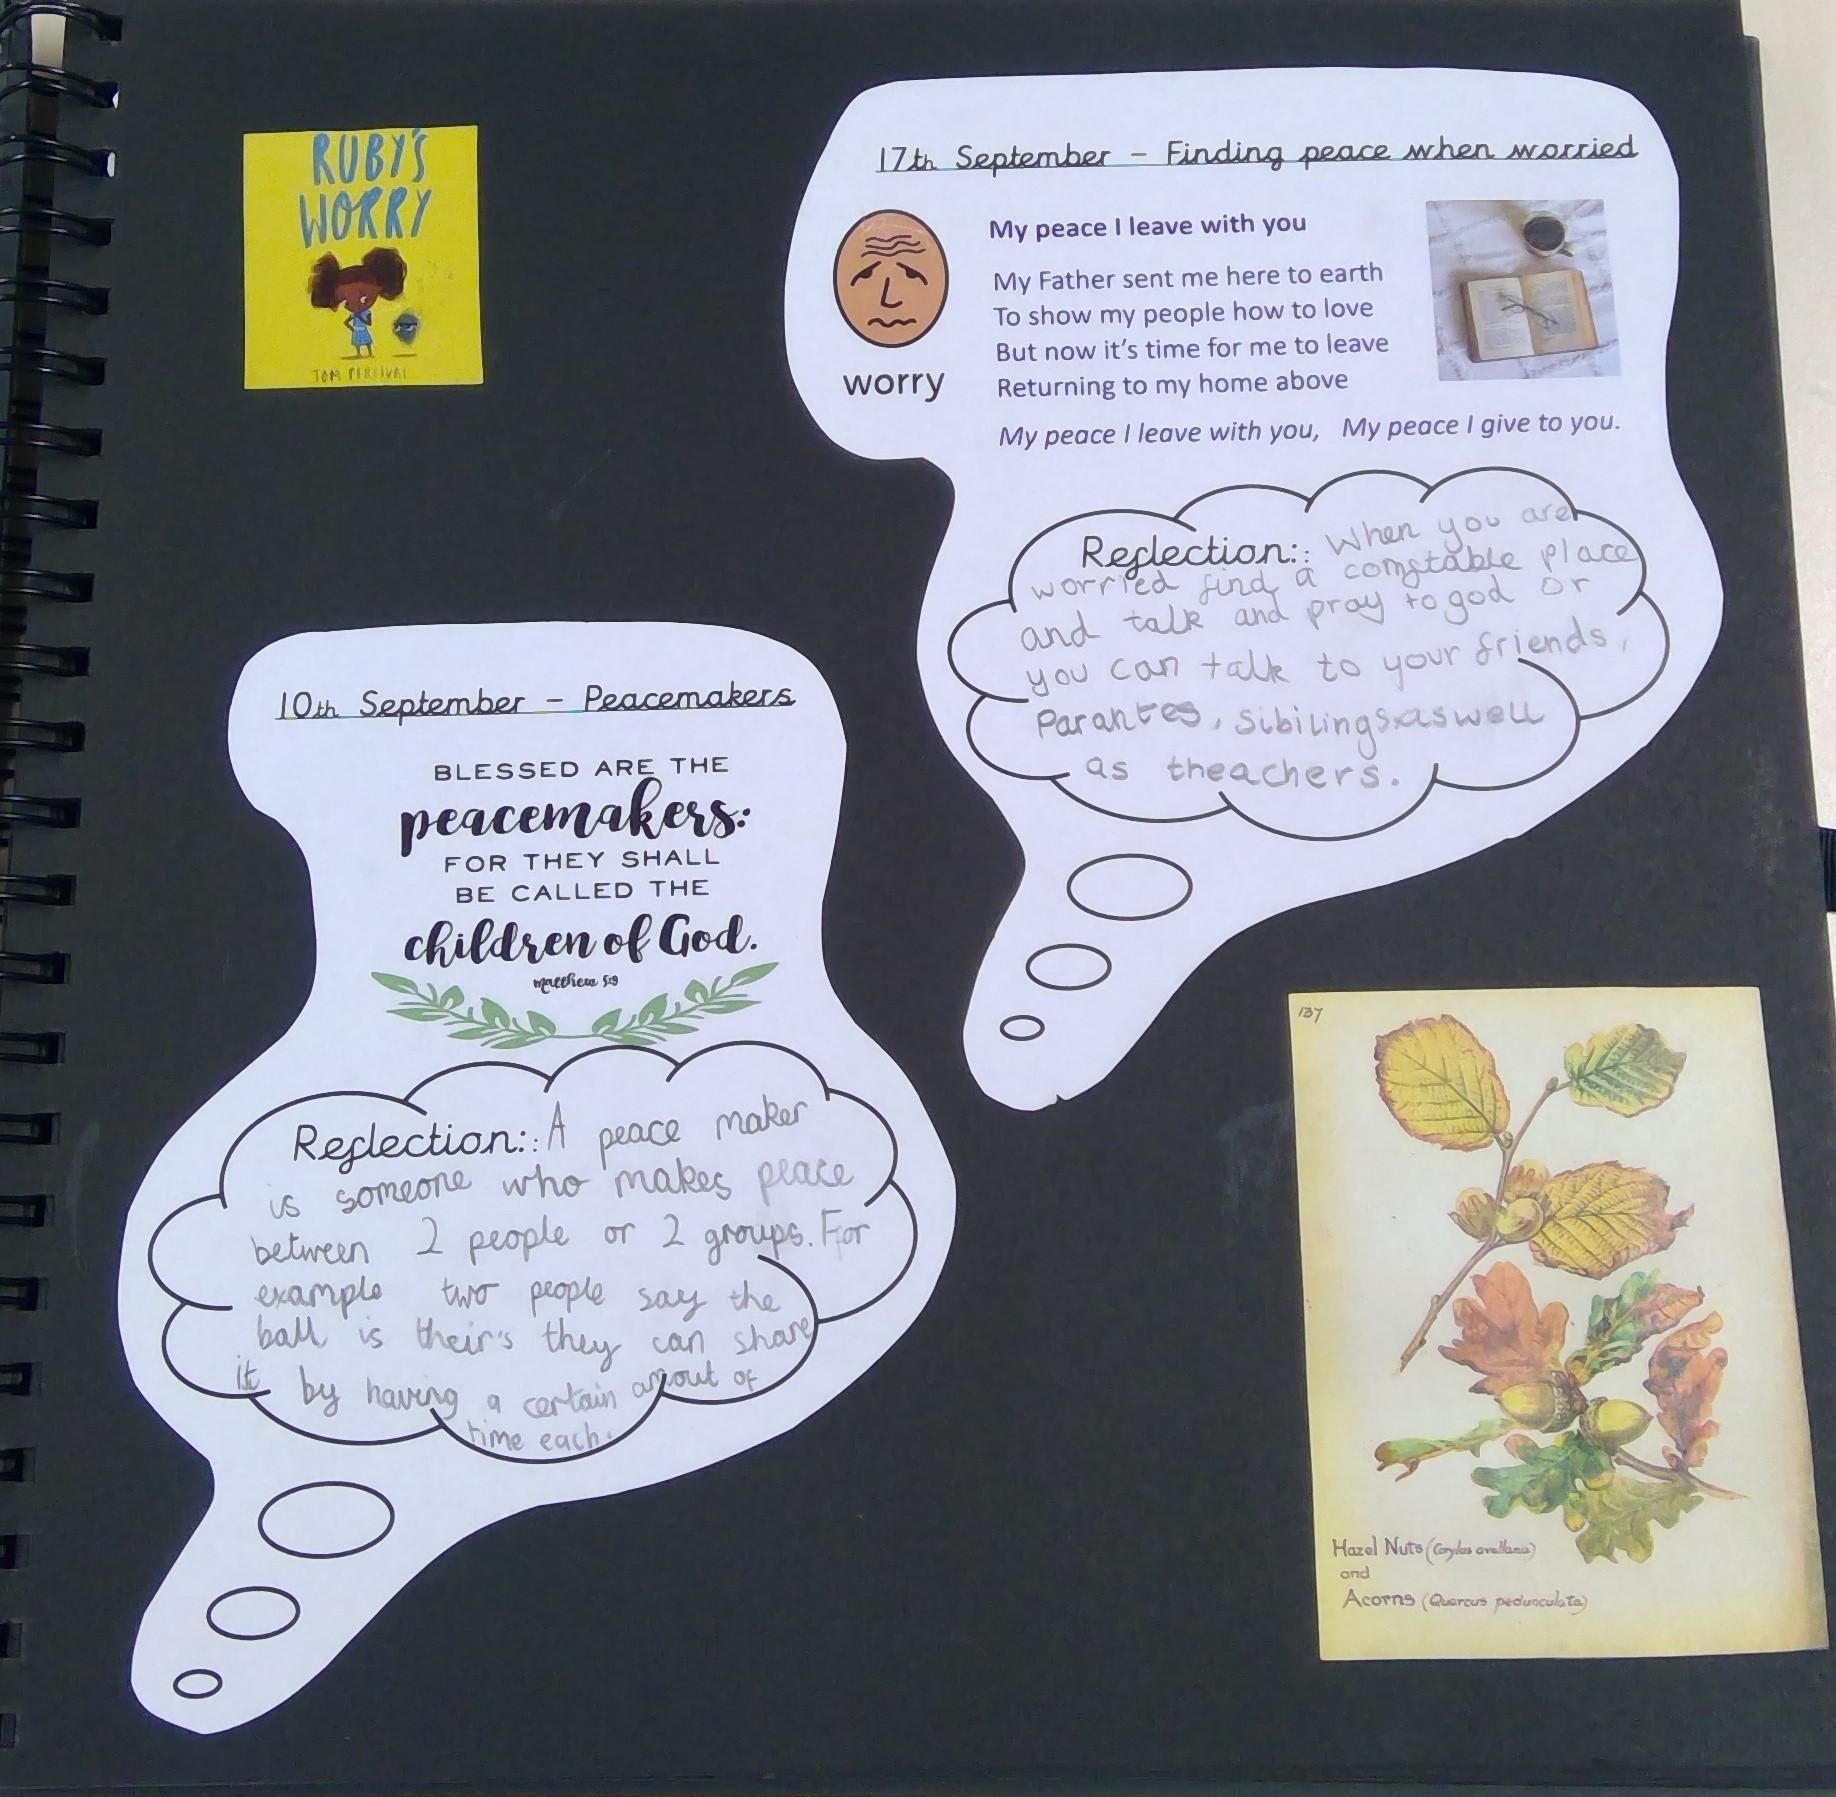 RUBY'S
WORRY
TOM PERCIVAL
17th September - Finding peace when worried
worry
My peace I leave with you
My Father sent me here to earth
To show my people how to love
But now it's time for me to leave
Returning to my home above
My peace I leave with you, My peace I give to you.
Reflection:: When you are
worried find a comftable place
and talk and pray to god or
you can talk to your friends,
Parantes, sibilings as well
as theachers.
10th September - Peacemakers
BLESSED ARE THE
peacemakers:
FOR THEY SHALL
BE CALLED THE
children of God.
matthew 5:9
Reflection:: A peace maker
is someone who makes peace
between 2 people or 2 groups. For
example two people say the
ball is their's they can share
it by having a certain amout of
time each.
137
Hazel Nuts (Corylus avellana)
and
Acorns (Quercus pedunculata)